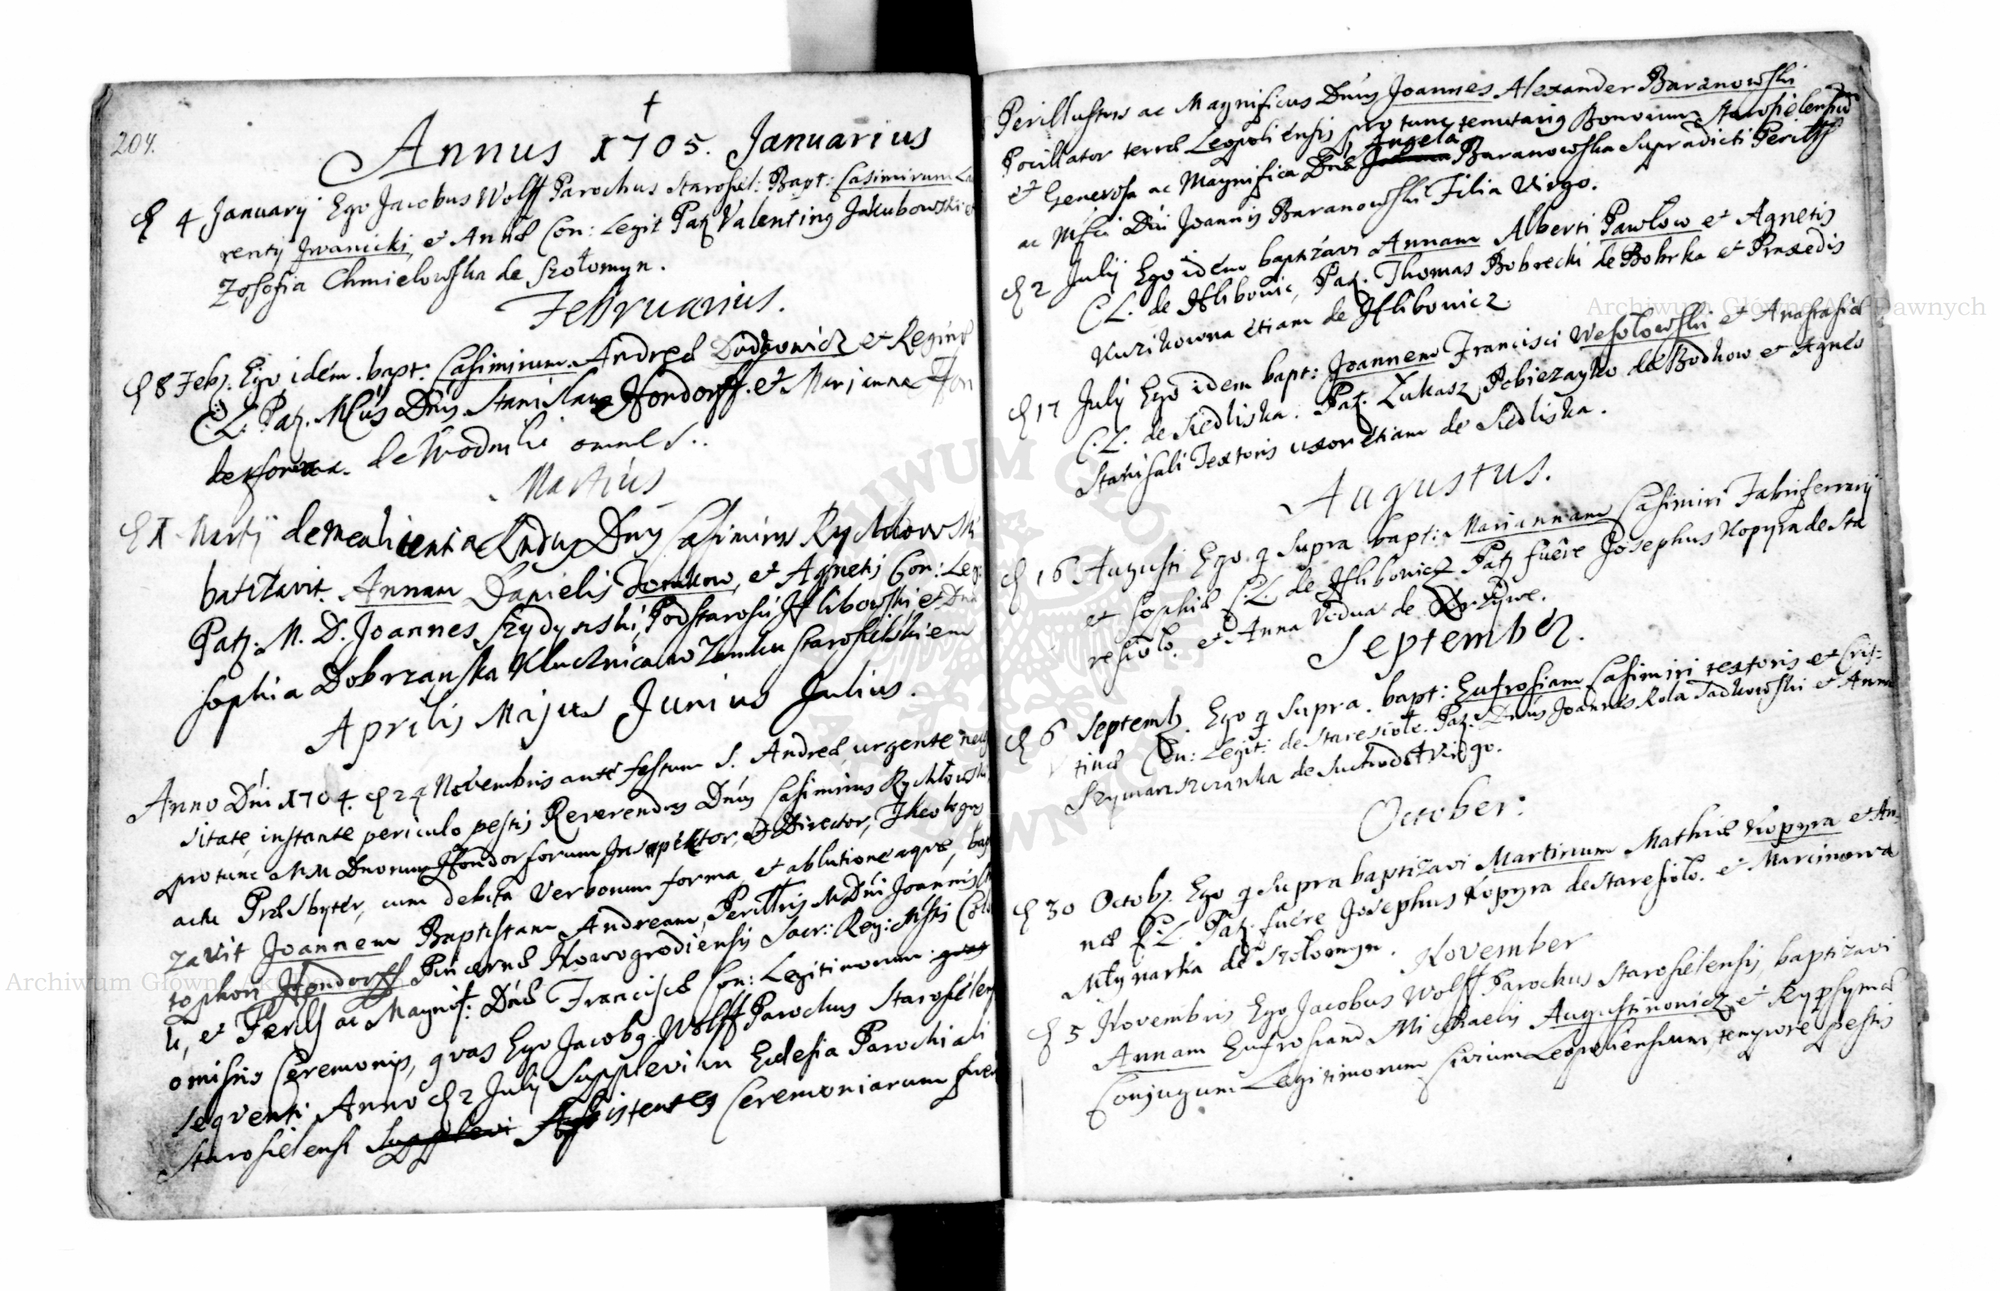 204.
†
Annus 1705. Januarius
4 Januarij Ego Jacobus Wolff Parochus Starosiel: Bapt: Casimirum Lau
rentij Iwanicki, et Annæ Con: Legit Patr Valentinus Jakubowski et
Zofia Chmielowska de Szołomyn.
Februarius.
8 Feb. Ego idem. bapt: Casimirum Andreæ et Reginæ
C.L. Patr. Mcus Dnus Stanislaus Hondorff. et Marjanna Hon
de Wodniki omnes.
Martius
Martij Rndus Dnus Casimirus Rychłowski
batizavit. Annam Danielis et Agnetis Con: Leg:
Patr. M. D. Joannes Szydynski, Podstarosci Hlibowski, et Dna
Sophia Dobrzanska Klucznica w Zamku Starosielskiem
Aprilis Majus Junius Julius.
Anno Dni 1704. 24 Novembris ante festum S. Andreæ, urgente neces
sitate, instante periculo pestis Reverendus Dnus Casimirus Rychłowski
pro tunc MM Dnorum Hondorforum Inspektor, et Director, Theologus
actu Præsbyter, cum debita verborum forma, et ablutione aqvæ, bapti
zavit Joannem Baptistam Andream, Perillris M Dni Joannis
tophori Hondorff Pincernæ Nowogrodiensis Sacr: Reg: Mstis
et Perills ac Magnif: Dnæ Franciscæ Con: Legitimorum
omissis Ceremonijs, qvas Ego Jacobus Wolff Parochus Starosielen
seqventi Anno 2 Julij Supplevi in Ecclesia Parochiali
Starosielensi Supplevi Assistentes Ceremoniarum fuer
Perillustris ac Magnificus Dnus Joannes Alexander Baranowski
Pocillator terræ Leopoliensis, pro tunc tenutarius Bonorum Starosielensium
Angela
et Generosa ac Magnifica Dna Baranowska Supradicti Perills
ac Mfci Dni Joannis Baranowski Filia Virgo.
2 Julij Ego idem baptizavi Annam Alberti Pawlow et Agnetis
C.L. de Hlibovic, Patr. Thomas Bobrecki de Bobrka et Praxedis
Kuzikowna etiam de Hlibovicz.
17 July Ego idem bapt: Joannem Francisci Wesołowski et Anastasiæ
C.L. de Siedliska. Patr. Łukasz de Bodkow et Agnes
Stanislai Textoris uxor etiam de Siedliska.
Augustus.
16 Augusti Ego q supra. bapti. Mariannam Casimiri Fabriferrarij
et Sophiæ C.L. de Hlibovicz Patr fuere Josephus Kopyra de Sta
resioło. et Anna Vidua de
September.
6 Septemb. Ego q Supra. bapt: Eufrosiam Casimiri textoris et Cris-
tinæ Con: Legit: de Staresioło. Patr. Dnus Joannes Rola Tadkowski et Anna
de Suchodoł Virgo.
October:
30 Octob. Ego q supra baptizavi Martinum Mathiæ Kopyra et An-
næ C.L. Patr. fuere Josephus Kopyra de Staresioło. et Marcinowa
Młynarka de Szołomyn.
November
5 Novembris Ego Jacobus Wolff Parochus Starosielensis, baptizavi
Annam Eufrosiam Michaelis Augustinowicz et Rypsymæ
Conjugum Legitimorum Civium Leopoliensium, tempore pestis
Archiwum Główne Akt Dawnych
Archiwum Główne Akt Dawnych
ARCHIWUM GŁÓWNE AKT DAWNYCH